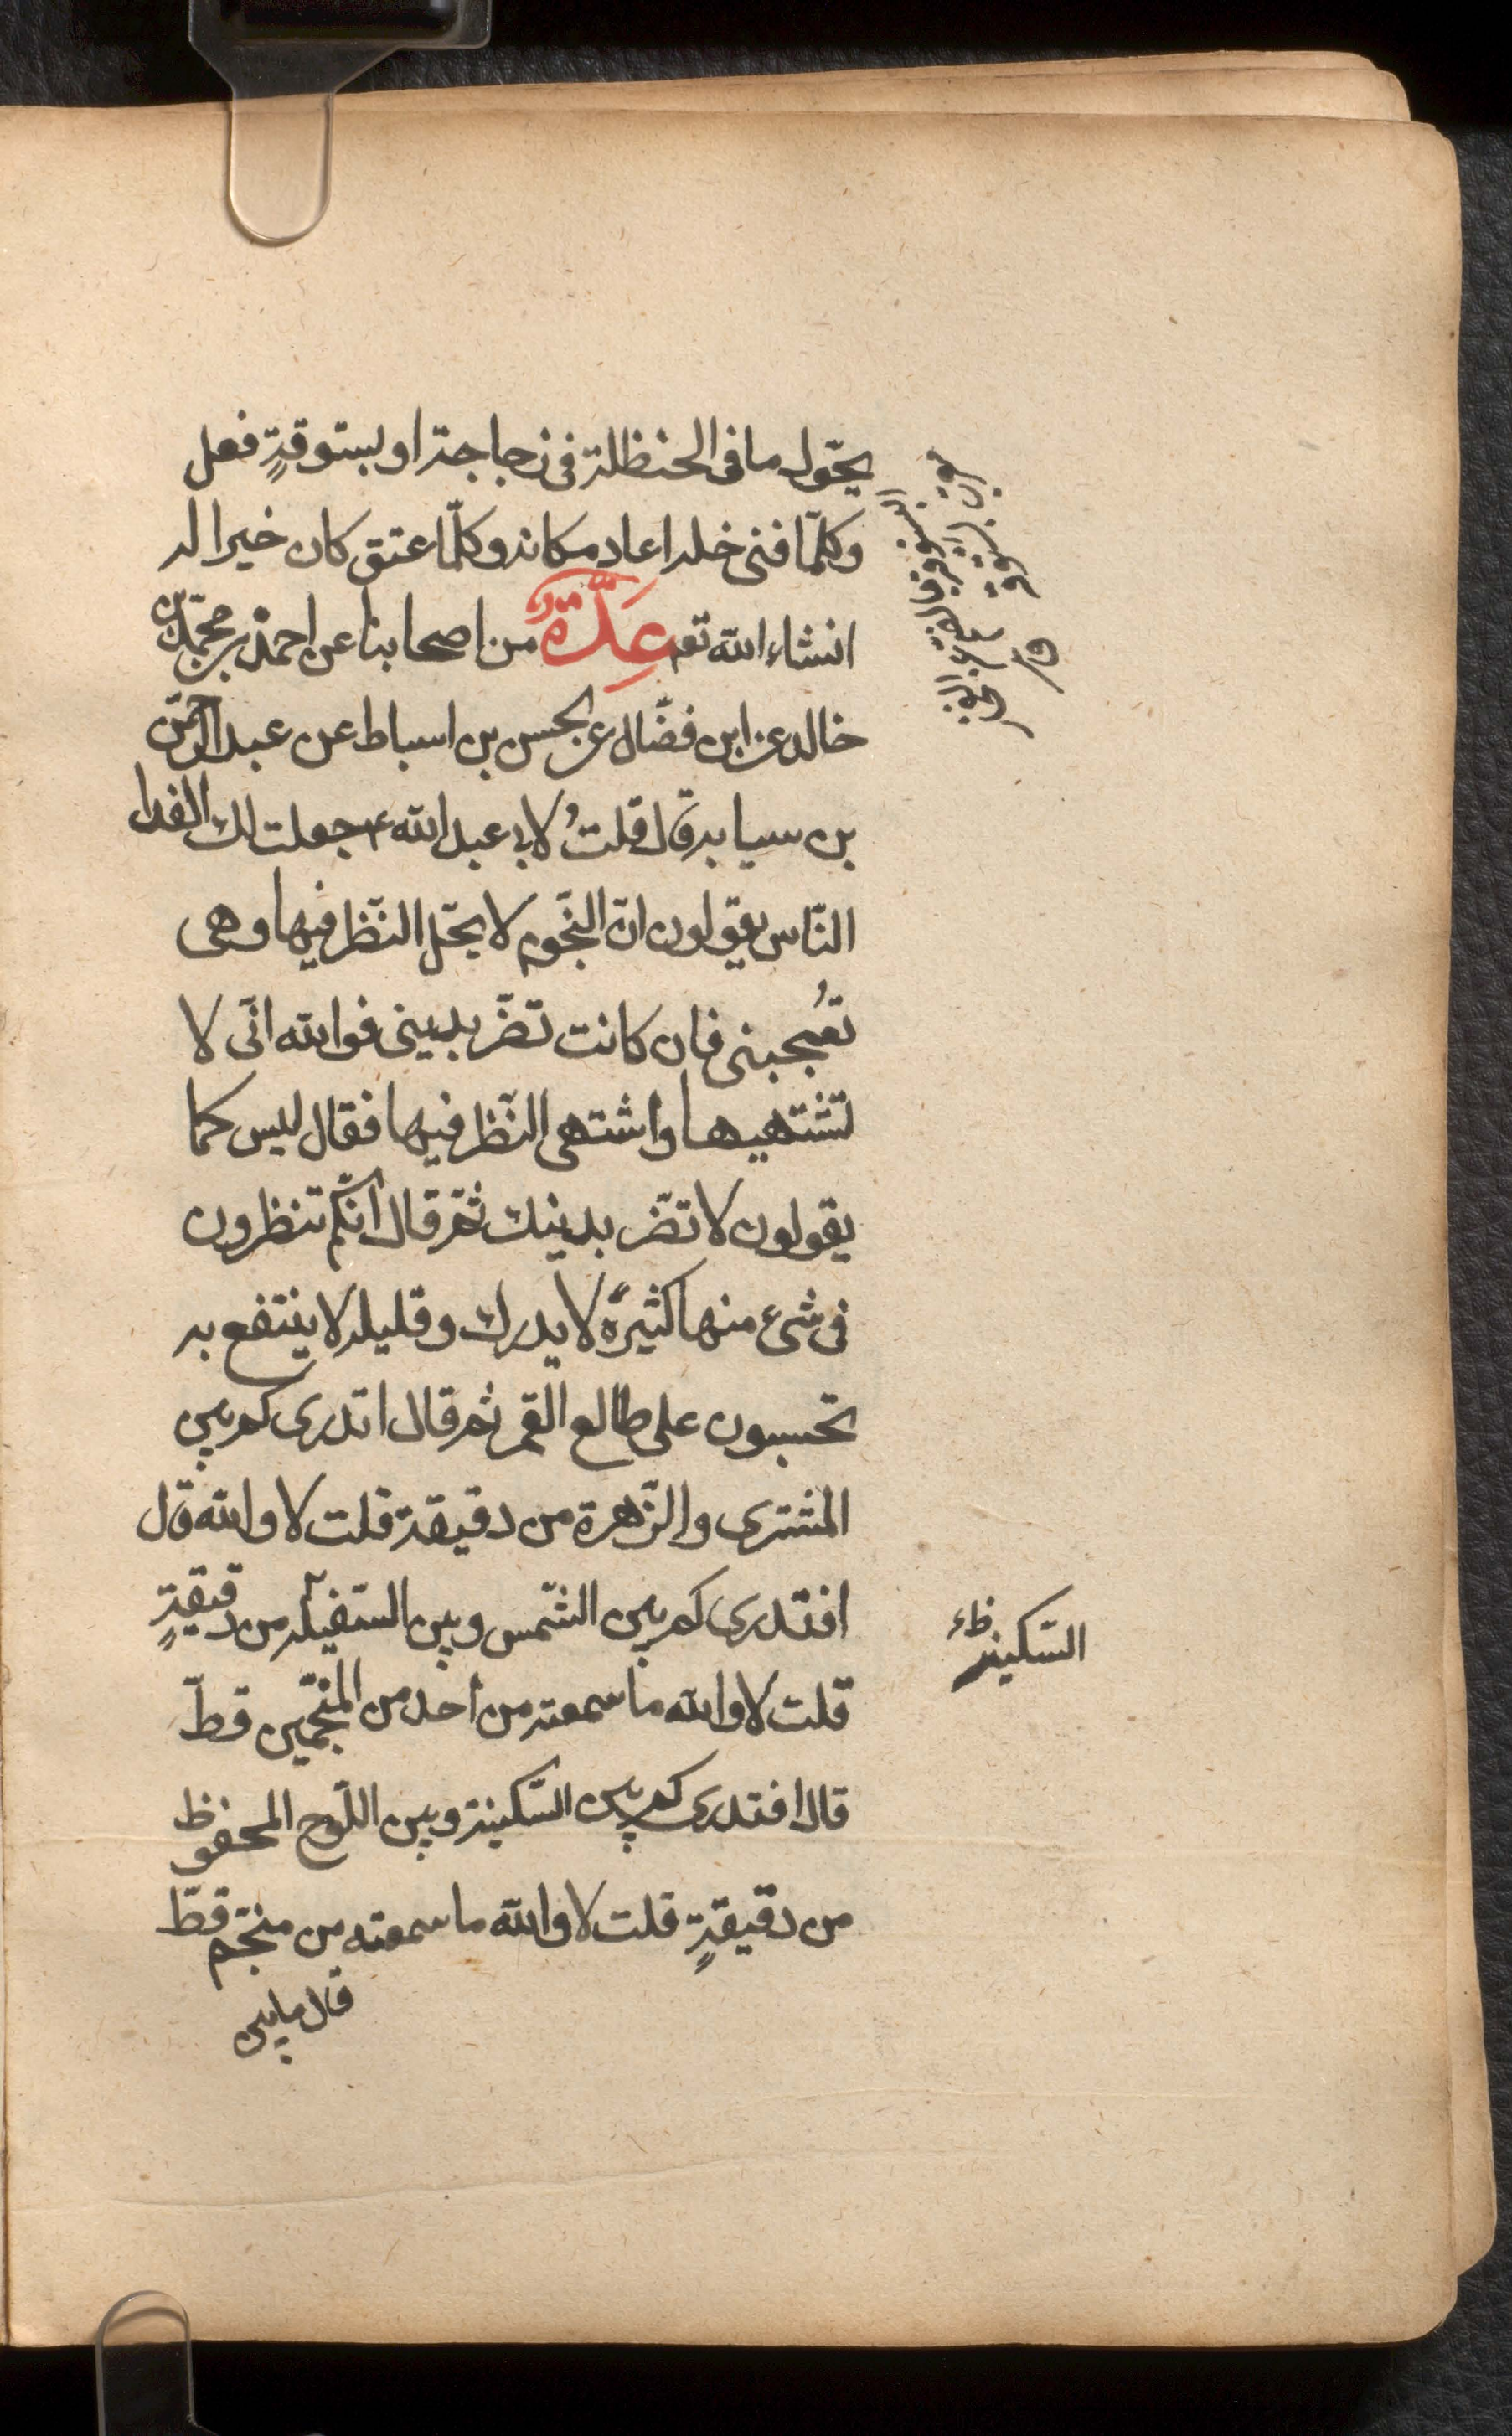 يحّول ما فى الحنظلة فى زجاجة او بستوقةٍ فعل
وكلّما فنى خله اعاد مكانه وكلّما عتق كان خيرا له
انشاء الله تعم عِدَّةٌ من اصحابنا عن احمد بن محمّد بن
خالد عن ابن فضّال عن الحسن بن اسباط عن عبد الرحمّن
بن سيابه قال قلتُ لابى عبد الله ع جعلت لك الفدا
النّاس يقولون انّ النّجوم لا يحّل النّظر فيها وهى
تُعجبنى فان كانت تضّر بدينى فوالله انّى لا
تشتهيها واشتهى النّظر فيها فقال ليس كما
يقولون لا تضّر بدينك ثمّ قال انّكم تنظرون
فى شىء منها كثيرهُ لا يدرك وقليله لا ينتفع به
تحسبون على طالع القمر ثم قال اتدرى كم بين
المشترى والزّهرة من دقيقة قلت لا والله قال
افتدرى كم بين الشّمس وبين السّفيله من دقيقةٍ
السّكينه ظ
قلت لا والله ما سمعته من احد من المنجّمين قطّ
قال افتدرى كم بين السّكينة وبين اللّوح المحفوظ
من دقيقةٍ قلت لا والله ما سمعته من منجّم قطّ
قال مابين